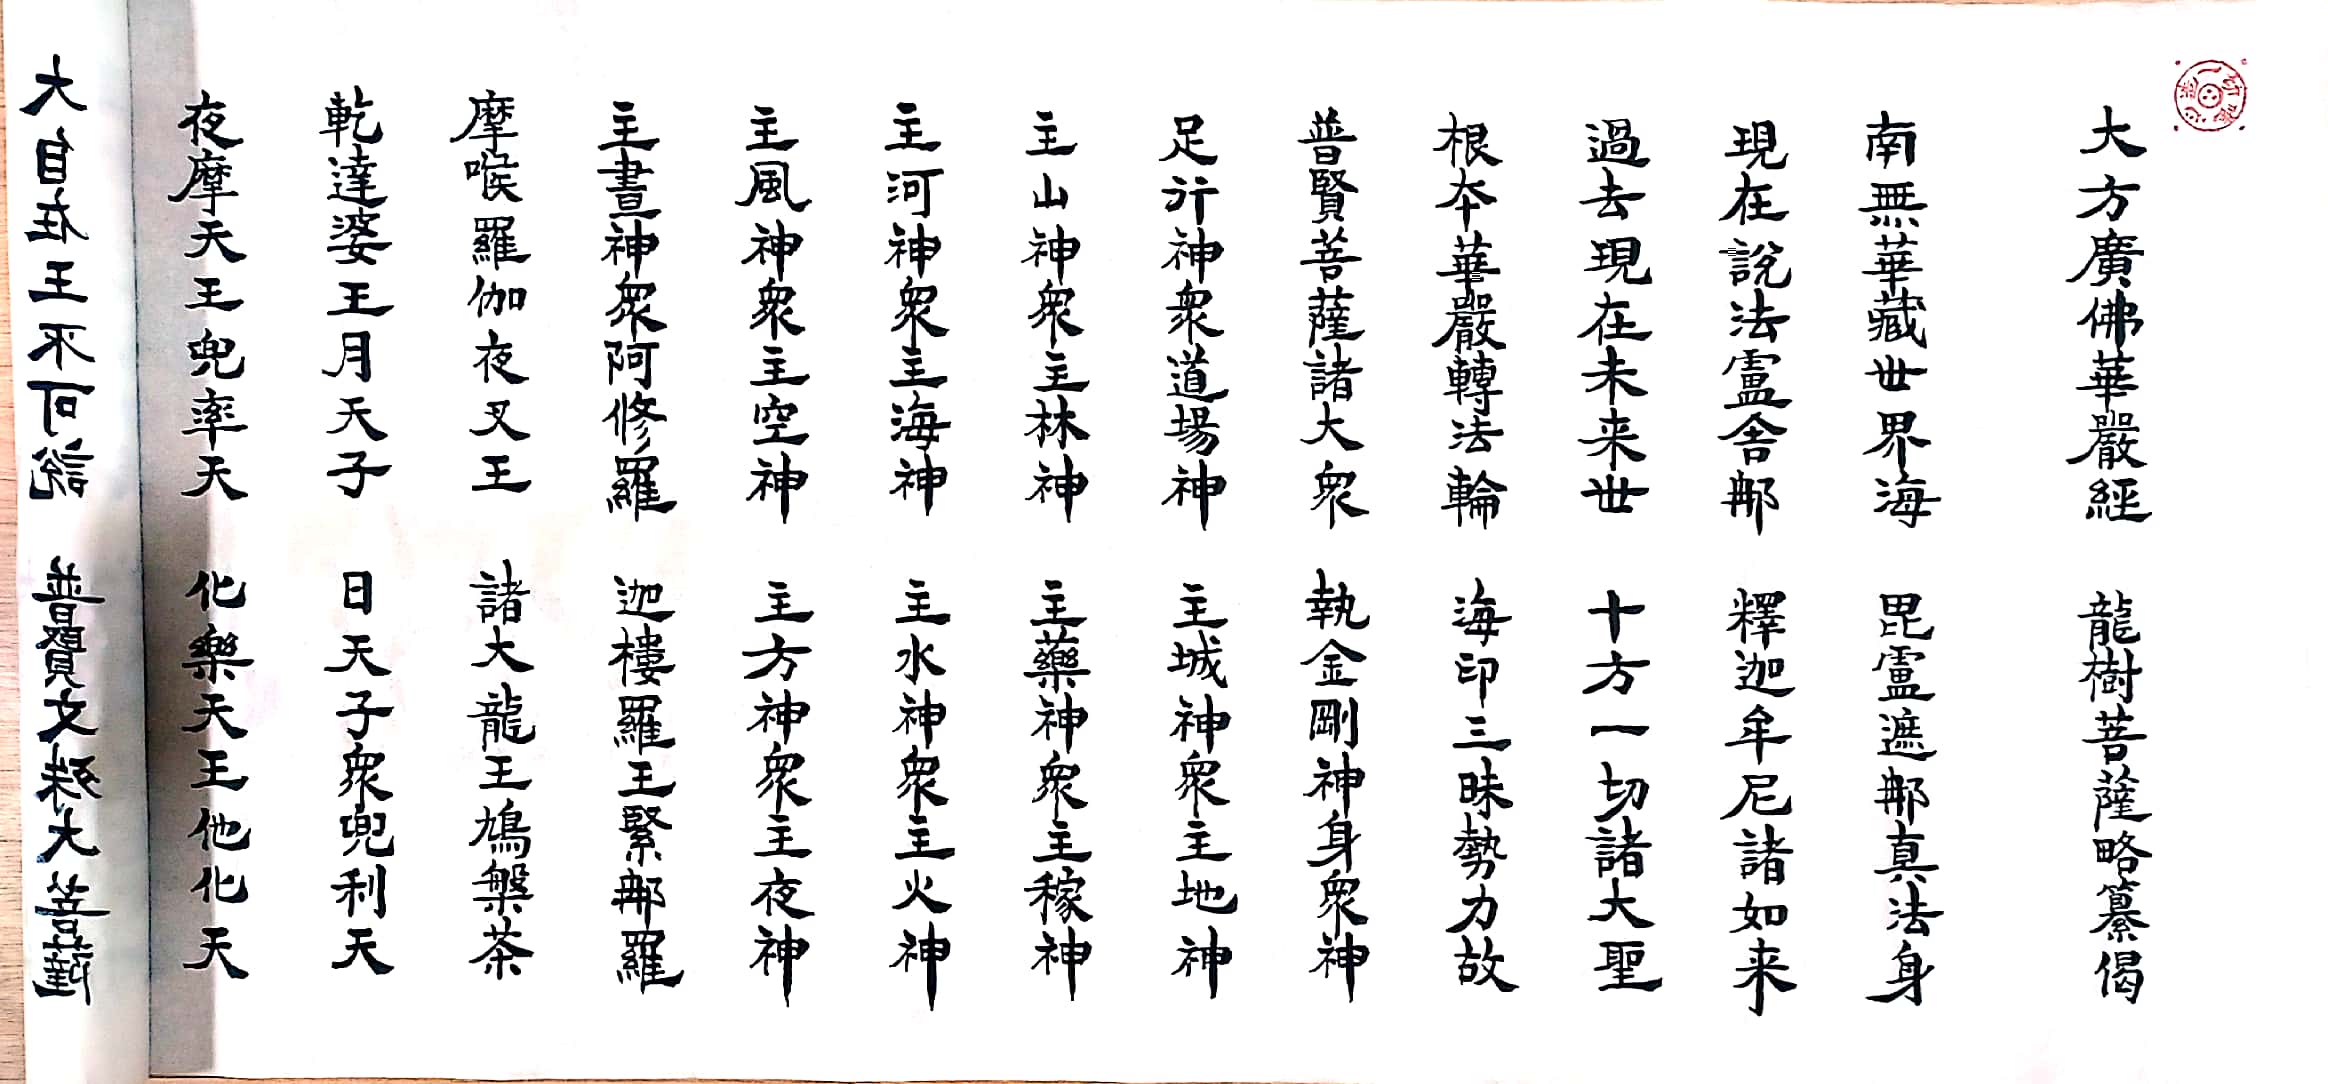 大方廣佛華嚴經 龍樹菩薩略纂偈
南無華藏世界海 毘盧遮那真法身
現在說法盧舍那 釋迦牟尼諸如来
過去現在未来世 十方一切諸大聖
根本華嚴轉法輪 海印三昧勢力故
普賢菩薩諸大衆 執金剛神身衆神
足行神衆道場神 主城神衆主地神
主山神衆主林神 主藥神衆主稼神
主河神衆主海神 主水神衆主火神
主風神衆主空神 主方神衆主夜神
主晝神衆阿修羅 迦樓羅王緊那羅
摩喉羅伽夜叉王 諸大龍王鳩槃茶
乾達婆王月天子 日天子衆兜利天
夜摩天王兜率天 化樂天王他化天
大自在王不可說 普賢文殊大菩薩